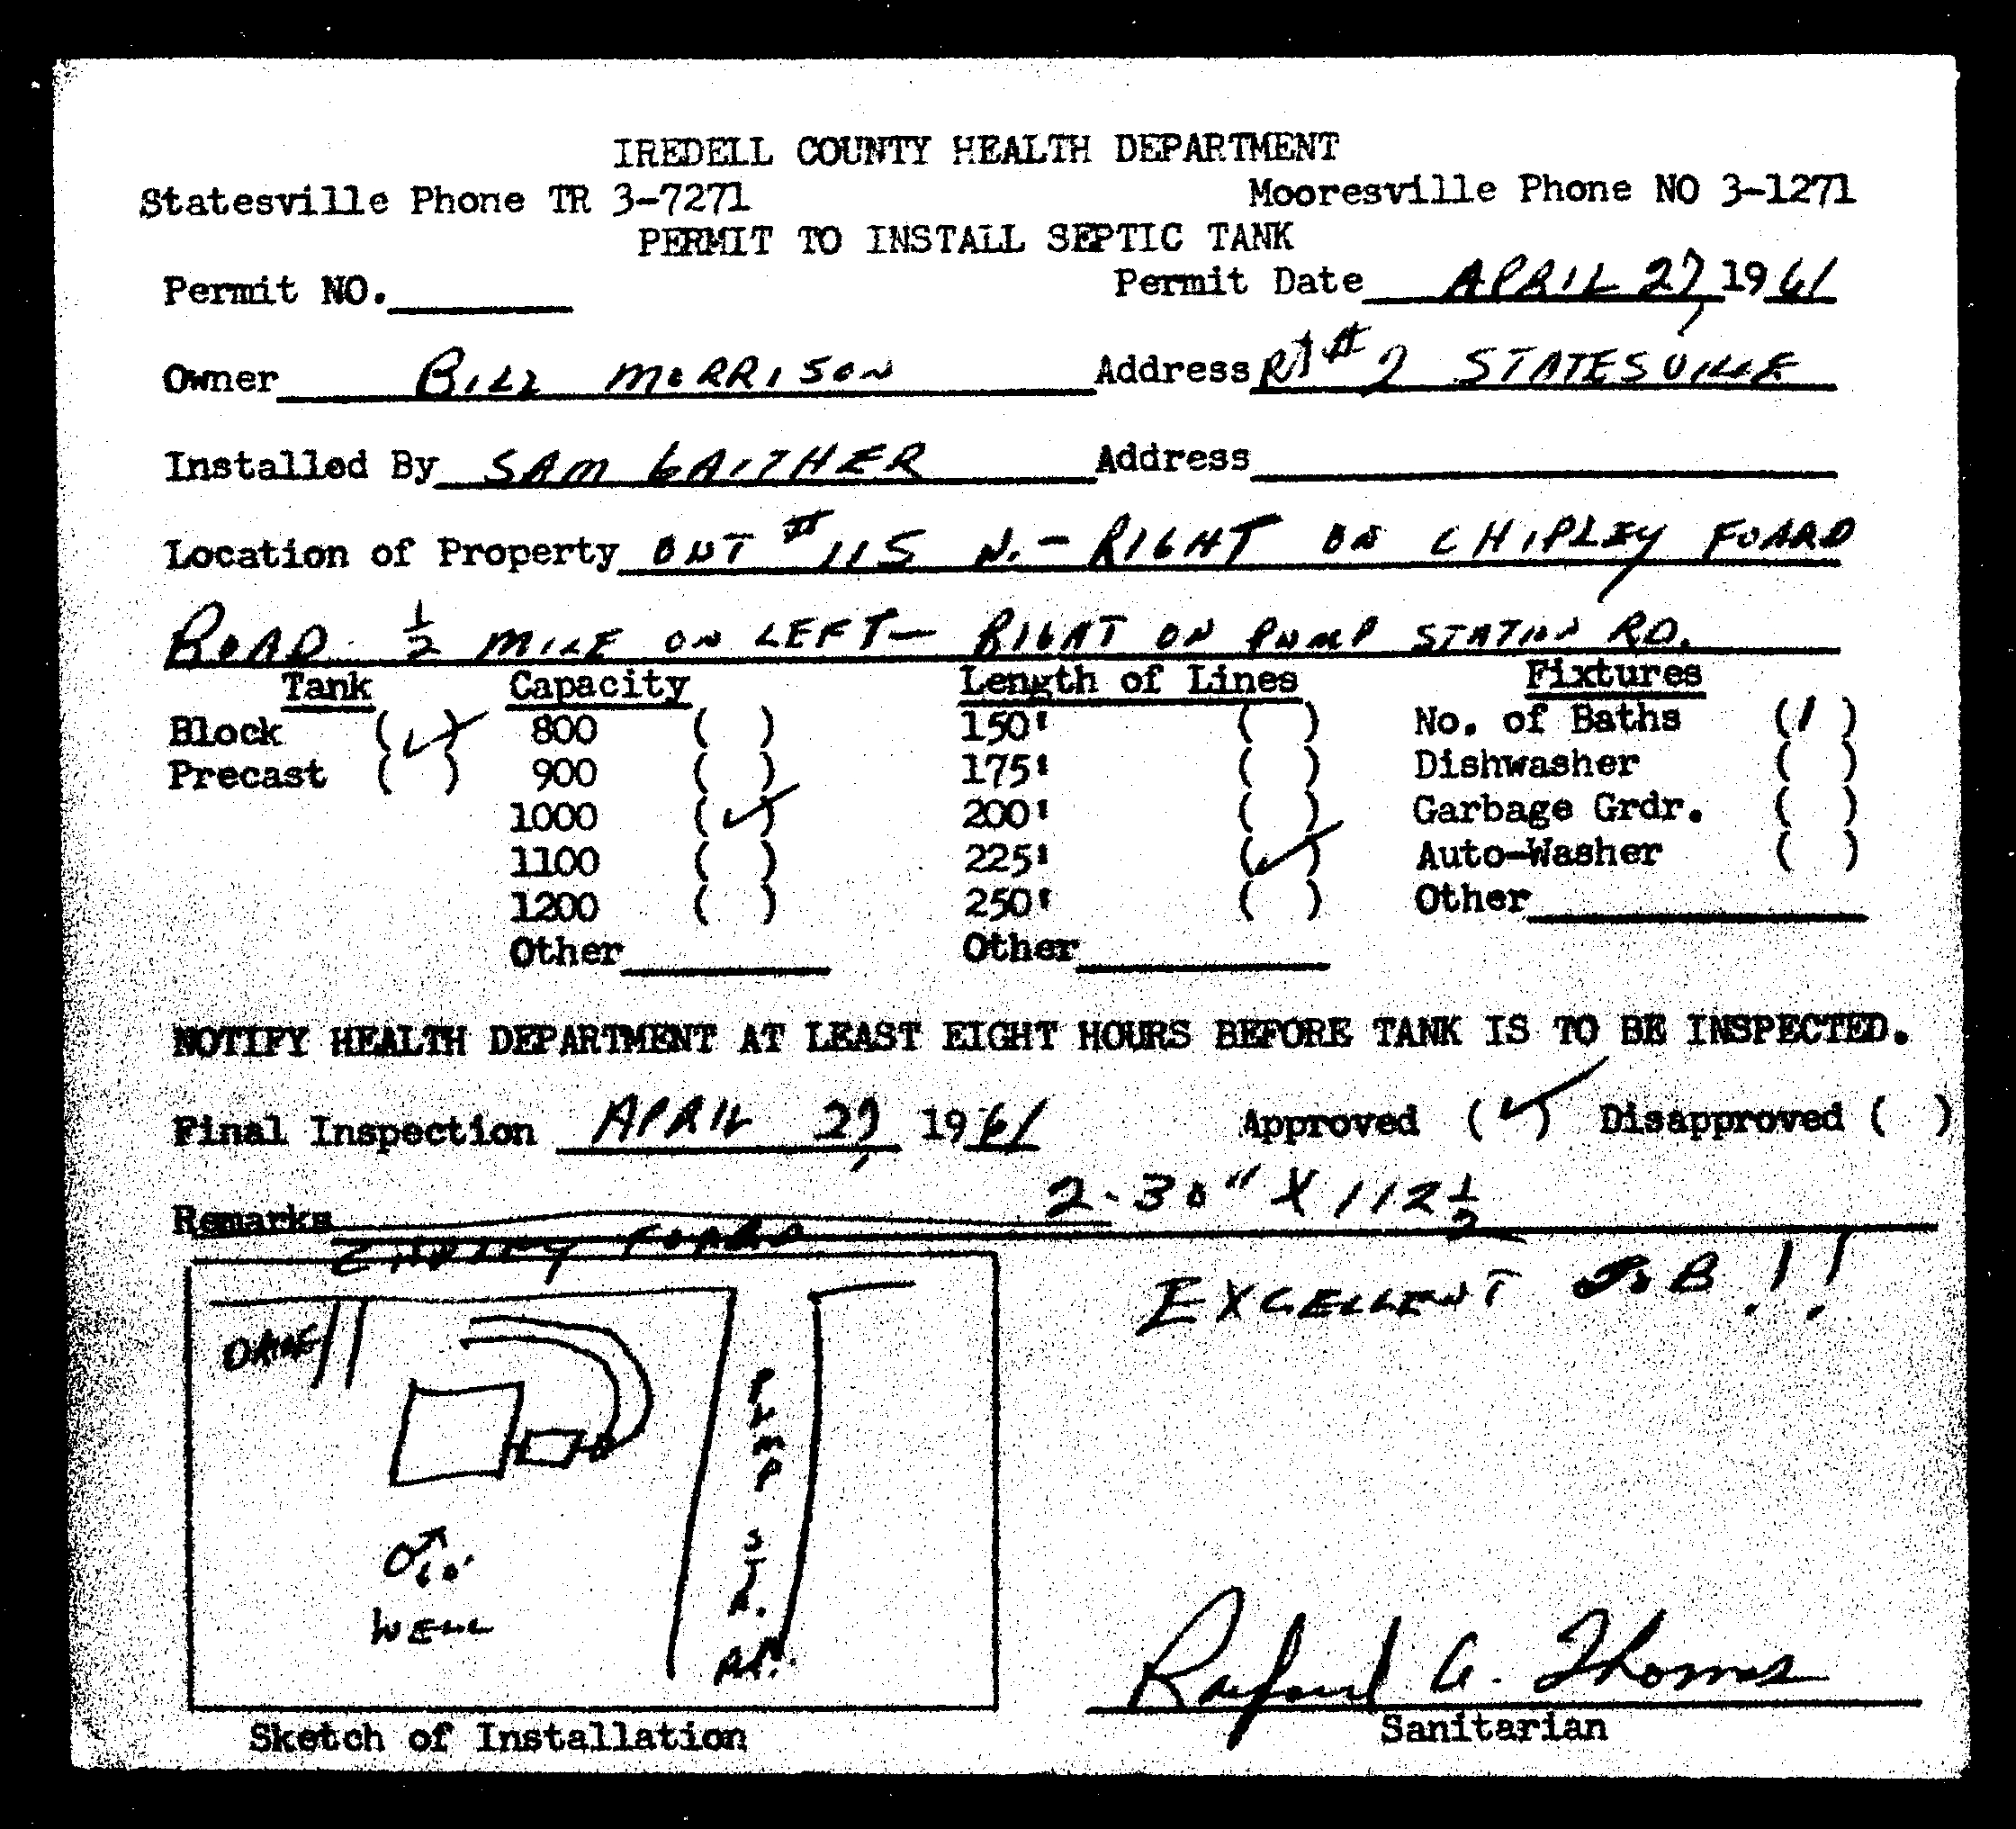 IREDELL COUNTY HEALTH DEPARTMENT
Statesville Phone TR 3-7271 Mooresville Phone NO 3-1271
PERMIT TO INSTALL SEPTIC TANK
Permit NO. Permit Date APRIL 27, 1961
Owner BILL MORRISON Address RT # 2 STATESVILLE
Installed By SAM GAITHER Address
Location of Property OUT # 115 N. - RIGHT ON CHIPLEY FOARD
ROAD 1/2 MILE ON LEFT - RIGHT ON PUMP STATION RD.
Tank Capacity Length of Lines Fixtures
Block (✓) 800 ( ) 150' ( ) No. of Baths (1)
Precast ( ) 900 ( ) 175' ( ) Dishwasher ( )
1000 (✓) 200' ( ) Garbage Grdr. ( )
1100 ( ) 225' (✓) Auto-Washer ( )
1200 ( ) 250' ( ) Other
Other Other
NOTIFY HEALTH DEPARTMENT AT LEAST EIGHT HOURS BEFORE TANK IS TO BE INSPECTED.
Final Inspection APRIL 27, 1961 Approved (✓) Disapproved ( )
Remarks 2-30" X 112 1/2
CHIPLEY FOARD
EXCELLENT JOB!!
DRIVE
PUMP STA. RD.
60'
WELL
Raiford G. Thomas
Sketch of Installation Sanitarian